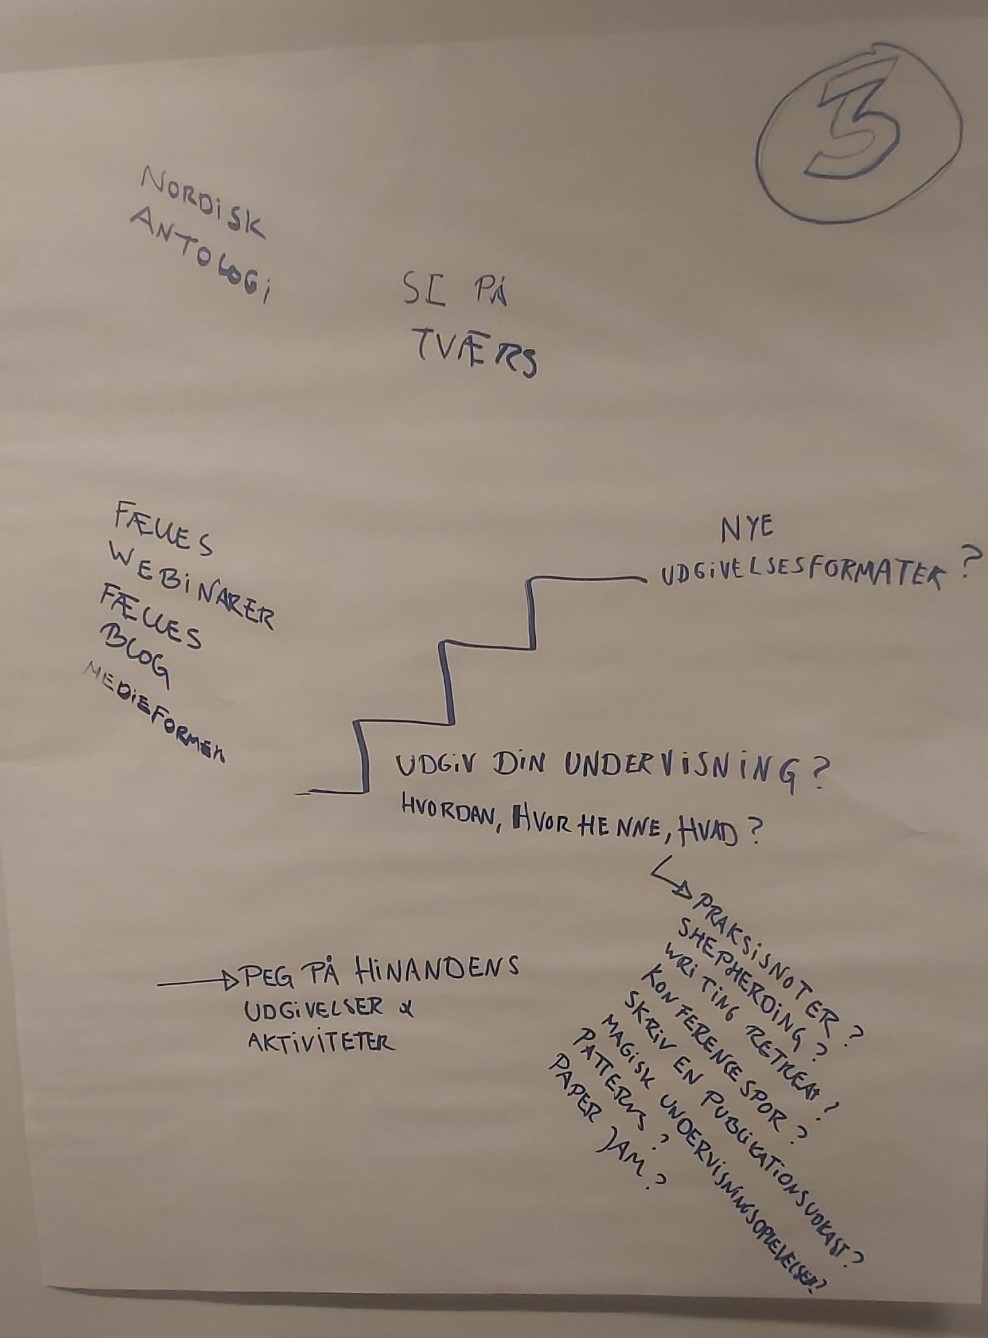 3
NORDISK
ANTOLOGI
SE PÅ
TVÆRS
FÆLLES
WEBINARER
FÆLLES
BLOG
MEDIEFORMER
NYE
UDGIVELSESFORMATER?
UDGIV DIN UNDERVISNING?
HVORDAN, HVORHENNE, HVAD?
PRAKSISNOTER?
SHEPHERDING?
WRITING RETREAT?
KONFERENCESPOR?
SKRIV EN PUBLIKATIONSUDKAST?
MAGISK UNDERVISNINGSOPLEVELSER?
PATTERNS?
PAPER JAM?
PEG PÅ HINANDENS
UDGIVELSER &
AKTIVITETER